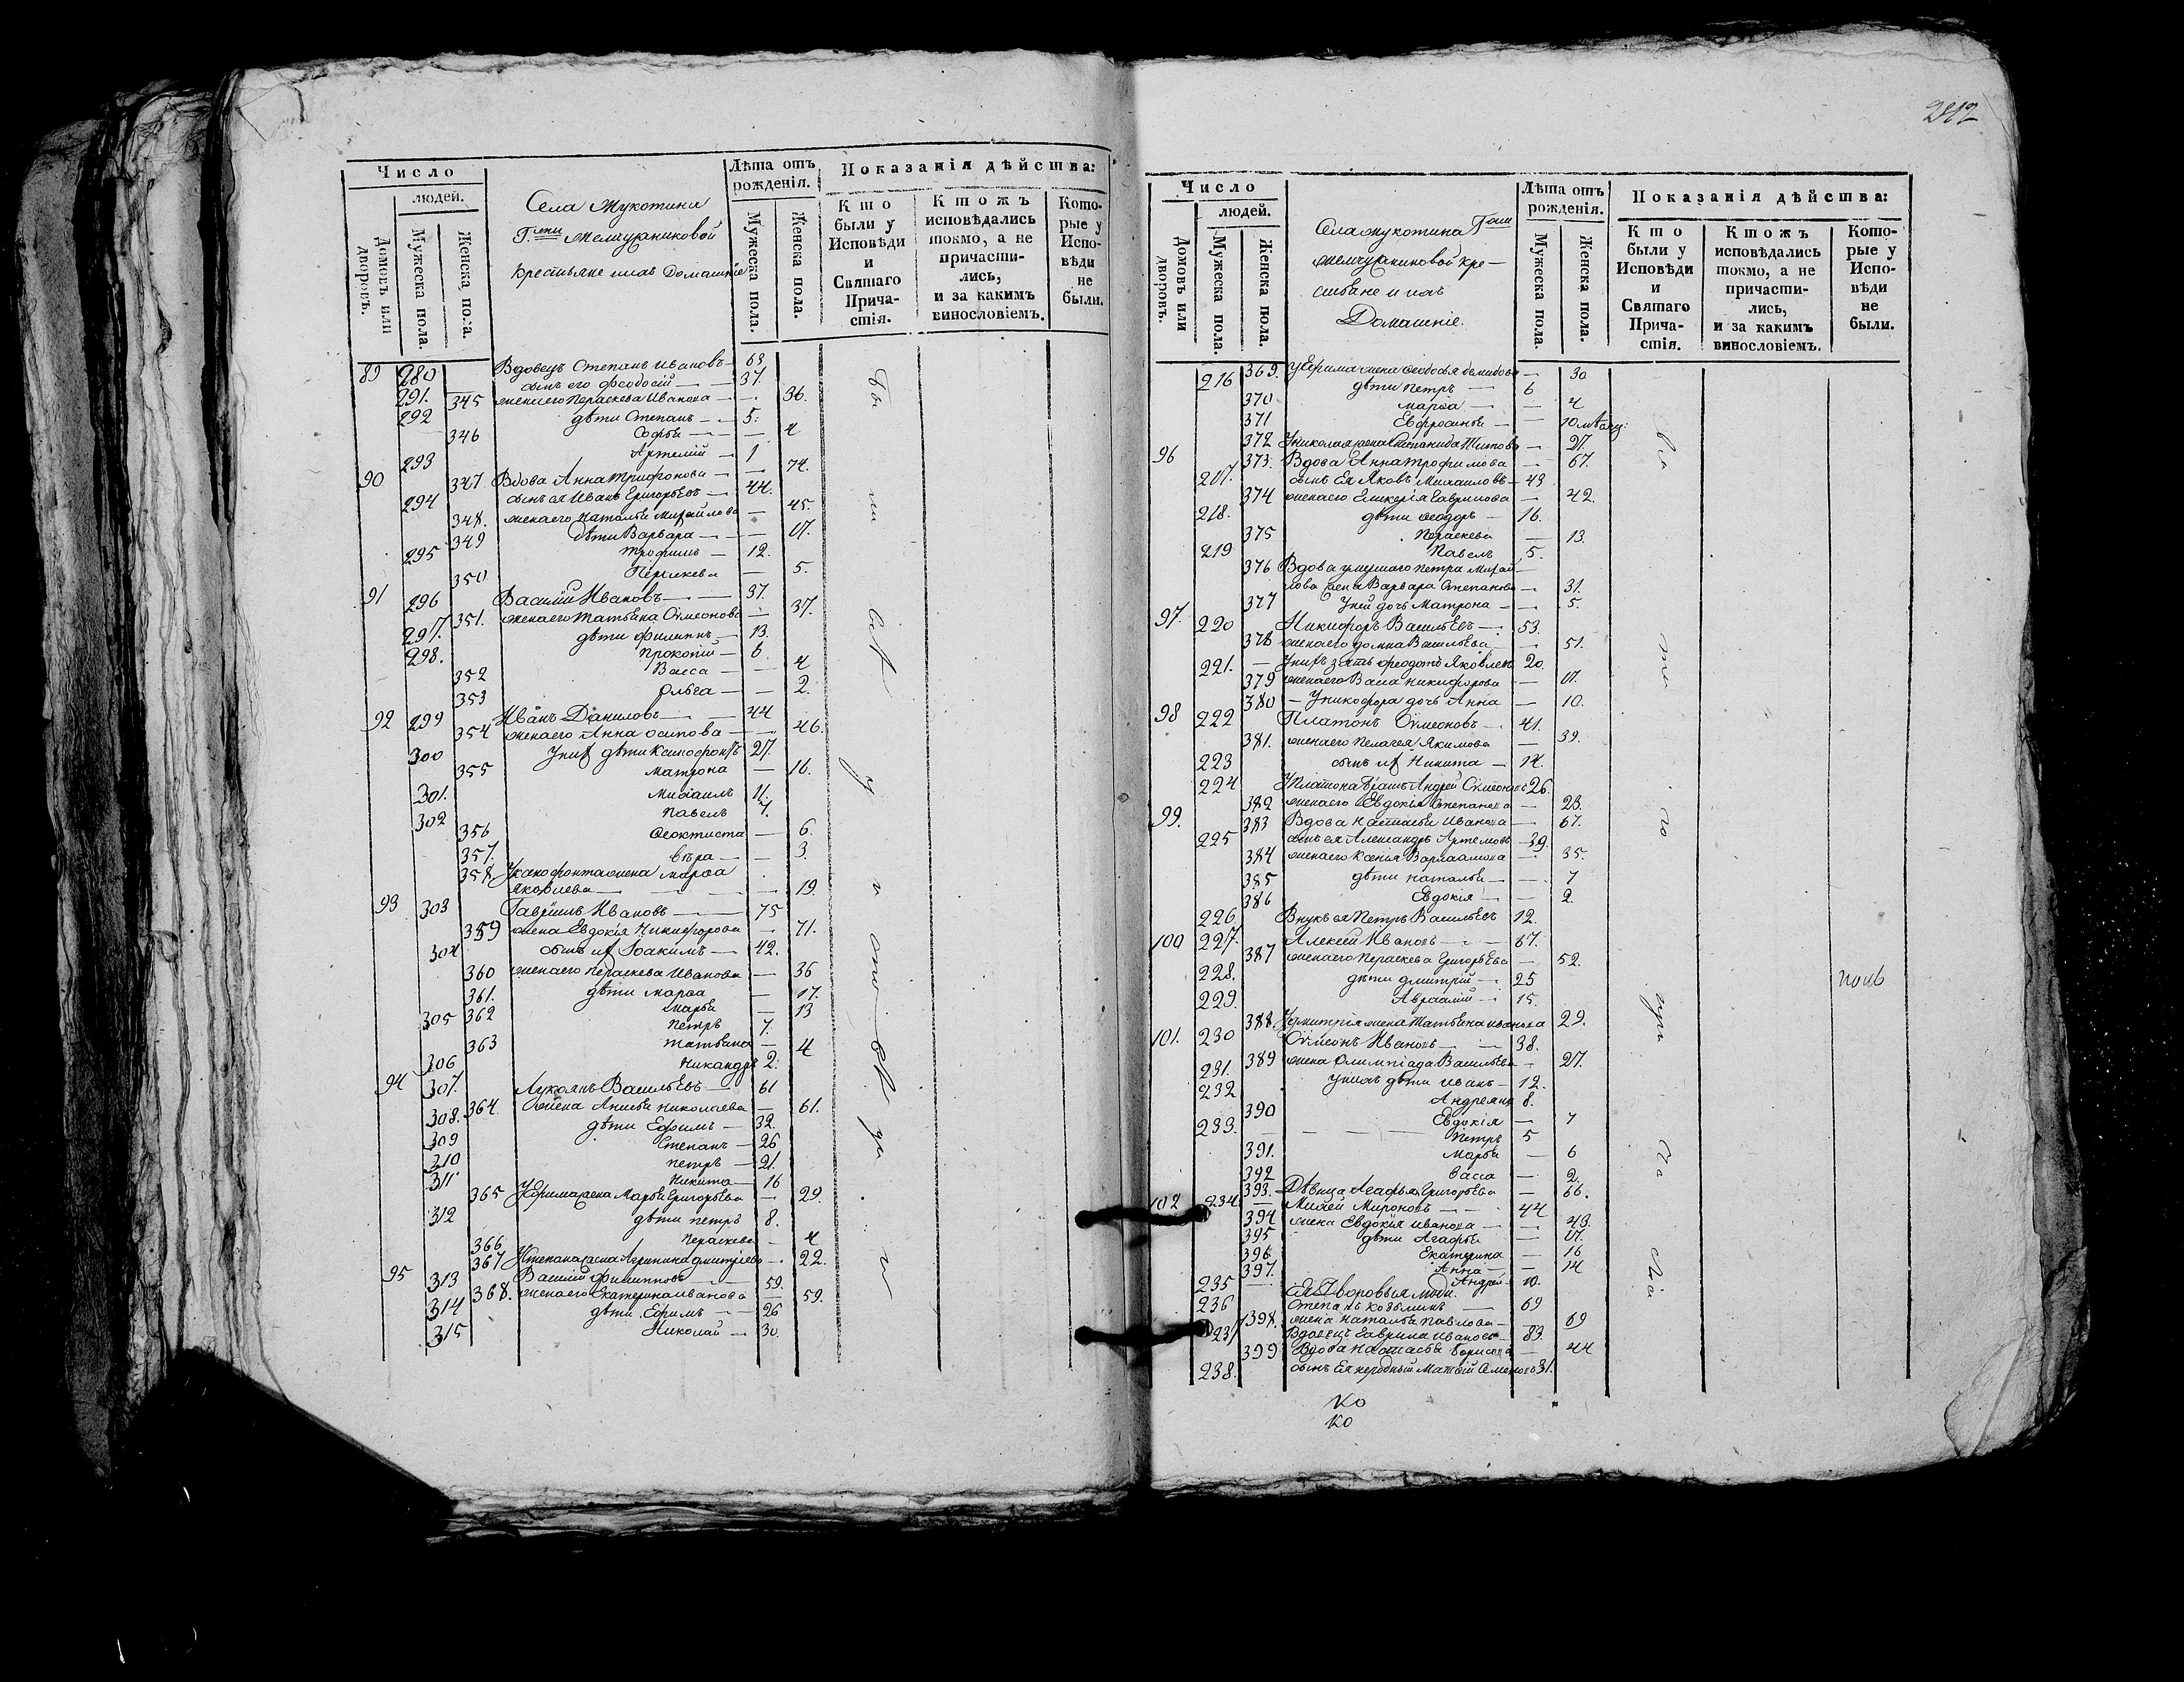 Число
людей.
Домовъ или дворовъ.
Мужеска пола.
Женска пола.
Села Мукотина
Г.жи Мельгуниковой
крестьяне и ихъ Домашніе
Лѣта отъ рожденія.
Мужеска пола.
Женска пола.
Показанія дѣйства:
Кто были у Исповѣди и Святаго Причастія.
Ктожъ исповѣдались токмо, а не причастились, и за какимъ винословіемъ.
Которые у Исповѣди не были.
89 280 Вдовецъ Степанъ Ивановъ — 63
291. сынъ его Феодосій — 37.
345 жена его Параскева Иванова — 36.
292 дѣти Степанъ — 5.
346 Софья — 4
293 Артемій — 1
90 347 Вдова Анна Трифонова — 74.
294 сынъ ея Иванъ Григорьевъ — 44.
348. жена его Наталья Михайлова — 45.
349 дѣти Варвара — 17.
295 Трофимъ — 12.
350 Параскева — 5.
91 296 Василій Ивановъ — 37.
351. жена его Татьяна Симеонова — 37.
297. дѣти Филиппъ — 13.
298. Прокопій — 6.
352 Васса — 4
353 Ольга — 2.
92 299 Иванъ Даниловъ — 44
354 жена его Анна Осипова — 46.
300 У нихъ дѣти Ксенофонтъ 27
355 Матрона — 16.
301. Михаилъ 11.
302 Павелъ 7.
356 Феоктиста — 6.
357. Вѣра — 3.
358. У Ксенофонта жена Марфа
Яковлева — 19.
93 303 Гавріилъ Ивановъ — 75
359 жена Евдокія Никифорова — 71.
304 сынъ ихъ Іоакимъ — 42.
360 жена его Параскева Иванова — 36
361. дѣти Марфа — 17.
362 Марья — 13
305 Петръ 7.
363 Татьяна — 4
306 Никандръ 2.
94 307. Лукоянъ Васильевъ — 61
364 жена Анисья Николаева — 61.
308. дѣти Ефимъ — 32.
309 Степанъ — 26
310 Петръ — 21.
311 Никита — 16
365 У Ефима жена Марья Григорьева — 29.
312 дѣти Петръ 8.
366 Параскева — 4
367 У Степана жена Агрипина Дмитріева — 22.
95 313 Василій Филипповъ — 59.
368. жена его Екатерина Иванова — 59.
314 дѣти Ефимъ — 26
315 Николай — 30.
242
Число
людей.
Домовъ или дворовъ.
Мужеска пола.
Женска пола.
Села Мукотина Г.жи
Мельгуниковой кре—
стьяне и ихъ
Домашніе.
Лѣта отъ рожденія.
Мужеска пола.
Женска пола.
Показанія дѣйства:
Кто были у Исповѣди и Святаго Причастія.
Ктожъ исповѣдались токмо, а не причастились, и за какимъ винословіемъ.
Которые у Исповѣди не были.
369. У Ефима жена Феодосья Демидова — 30
216 дѣти Петръ — 6
370 Марфа — 4
371 Евфросинья — 10
372 У Николая жена Степанида Титова — 27.
96 373. Вдова Анна Трофимова — 67.
217. сынъ Ея Яковъ Михаиловъ — 43
374 жена его Гликерія Гаврилова — 42.
218. дѣти Феодоръ — 16.
375 Параскева — 13.
219 Павелъ 5.
376 Вдова умершаго Петра Михай—
лова жена Варвара Степанова — 31.
377 У ней дочь Матрона — 5.
97. 220 Никифоръ Васильевъ — 53.
378 жена его Домна Васильева — 51.
221. — У нихъ зять Феодотъ Яковлевъ 20.
379 жена его Васса Никифорова — 17.
380 — У Никифора дочь Анна — 10.
98 222 Платонъ Симеоновъ — 41.
381. жена его Пелагея Якимова — 39.
223 сынъ ихъ Никита — 14.
224 У Платона братъ Андрей Симеоновъ 26.
382 жена его Евдокія Степанова — 23.
99. 383 Вдова Настасья Иванова — 67.
225 сынъ ея Александръ Артемовъ — 39.
384 жена его Ксенія Варлаамова — 35.
385 дѣти Наталья — 7
386 Евдокія — 2.
226 Внукъ ея Петръ Васильевъ 12.
100 227. Алексей Ивановъ — 67.
387 жена его Параскева Григорьева — 52.
228. дѣти Дмитрій — 25
229. Авраамій — 15.
388. У Дмитрія жена Татьяна Иванова 29.
101. 230 Симеонъ Ивановъ — 38.
389 жена Олимпіада Васильева — 27.
231. У нихъ дѣти Иванъ — 12.
232 Андреянъ 8.
390 Евдокія — 7
233. Петръ 5
391. Марья — 6
392 Васса — 2.
393. — Дѣвица Агафья Григорьева — 66.
102 234. Михей Мироновъ — 44
394 жена Евдокія Иванова — 43.
395 дѣти Агафья — 17.
396 Екатерина — 16
397. Анна — 14
235 Андрей 10.
Ея Дворовыя люди.
236 Степанъ Козьминъ — 69
398. жена Наталья Павлова — 69
237 Вдовецъ Гаврила Ивановъ — 83.
399 Вдова Настасья Борисова — 44
238. сынъ Ея Матвѣй Семеновъ 31.